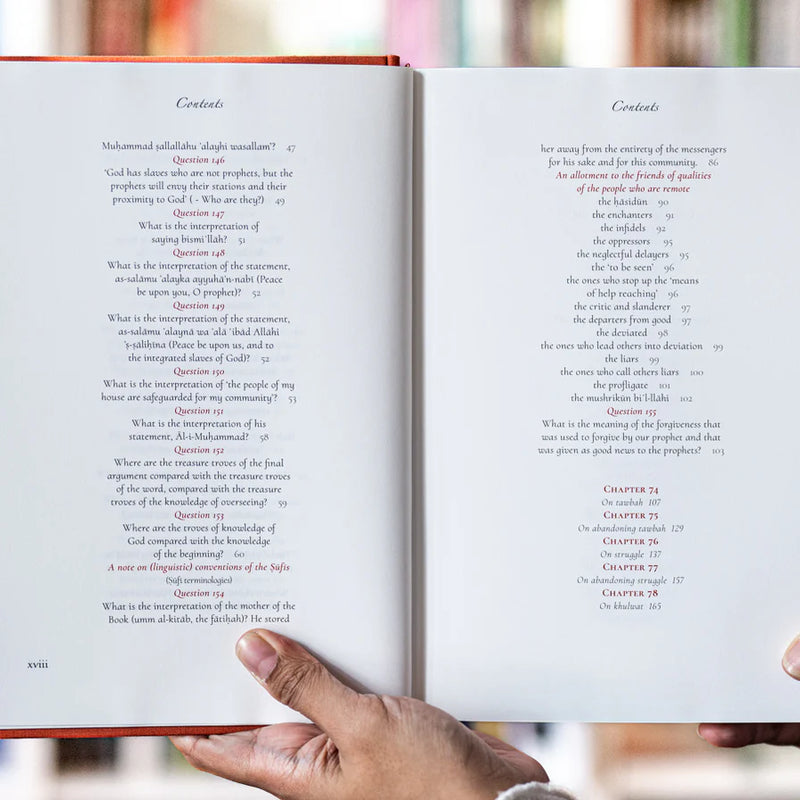 Contents
Muḥammad ṣallallāhu ʿalayhi wasallam’? 47
Question 146
‘God has slaves who are not prophets, but the
prophets will envy their stations and their
proximity to God’ ( - Who are they?) 49
Question 147
What is the interpretation of
saying bismi’llāh? 51
Question 148
What is the interpretation of the statement,
as-salāmu ʿalayka ayyuhā’n-nabī (Peace
be upon you, O prophet)? 52
Question 149
What is the interpretation of the statement,
as-salāmu ʿalaynā wa ʿalā ʿibād Allāhi
’ṣ-ṣāliḥīna (Peace be upon us, and to
the integrated slaves of God)? 52
Question 150
What is the interpretation of ‘the people of my
house are safeguarded for my community’? 53
Question 151
What is the interpretation of his
statement, Āl-i-Muḥammad? 58
Question 152
Where are the treasure troves of the final
argument compared with the treasure troves
of the word, compared with the treasure
troves of the knowledge of overseeing? 59
Question 153
Where are the troves of knowledge of
God compared with the knowledge
of the beginning? 60
A note on (linguistic) conventions of the Ṣūfīs
(Ṣūfī terminologies)
Question 154
What is the interpretation of the mother of the
Book (umm al-kitāb, the fātiḥah)? He stored
xviii
Contents
her away from the entirety of the messengers
for his sake and for this community. 86
An allotment to the friends of qualities
of the people who are remote
the ḥāsidūn 90
the enchanters 91
the infidels 92
the oppressors 95
the neglectful delayers 95
the ‘to be seen’ 96
the ones who stop up the ‘means
of help reaching’ 96
the critic and slanderer 97
the departers from good 97
the deviated 98
the ones who lead others into deviation 99
the liars 99
the ones who call others liars 100
the profligate 101
the mushrikūn bi’l-llāhi 102
Question 155
What is the meaning of the forgiveness that
was used to forgive by our prophet and that
was given as good news to the prophets? 103
Chapter 74
On tawbah 107
Chapter 75
On abandoning tawbah 129
Chapter 76
On struggle 137
Chapter 77
On abandoning struggle 157
Chapter 78
On khulwat 165